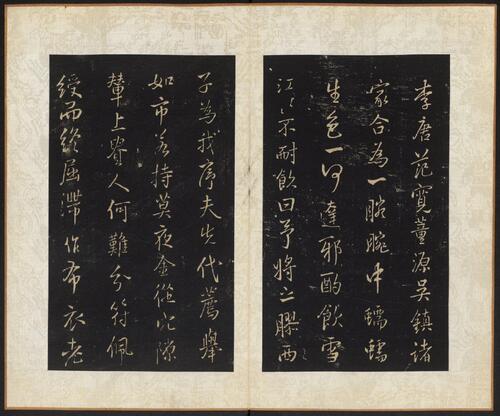 李唐范寬董源吳鎮諸
家合為一腕腕中蠕蠕
生色一何達邪酌飲雪
江江不耐飲曰予將之膠西
子為我序夫代薦舉
如市若持莫夜金從穴隙
輦上貴人何難分符佩
綬而終屈滯作布衣老